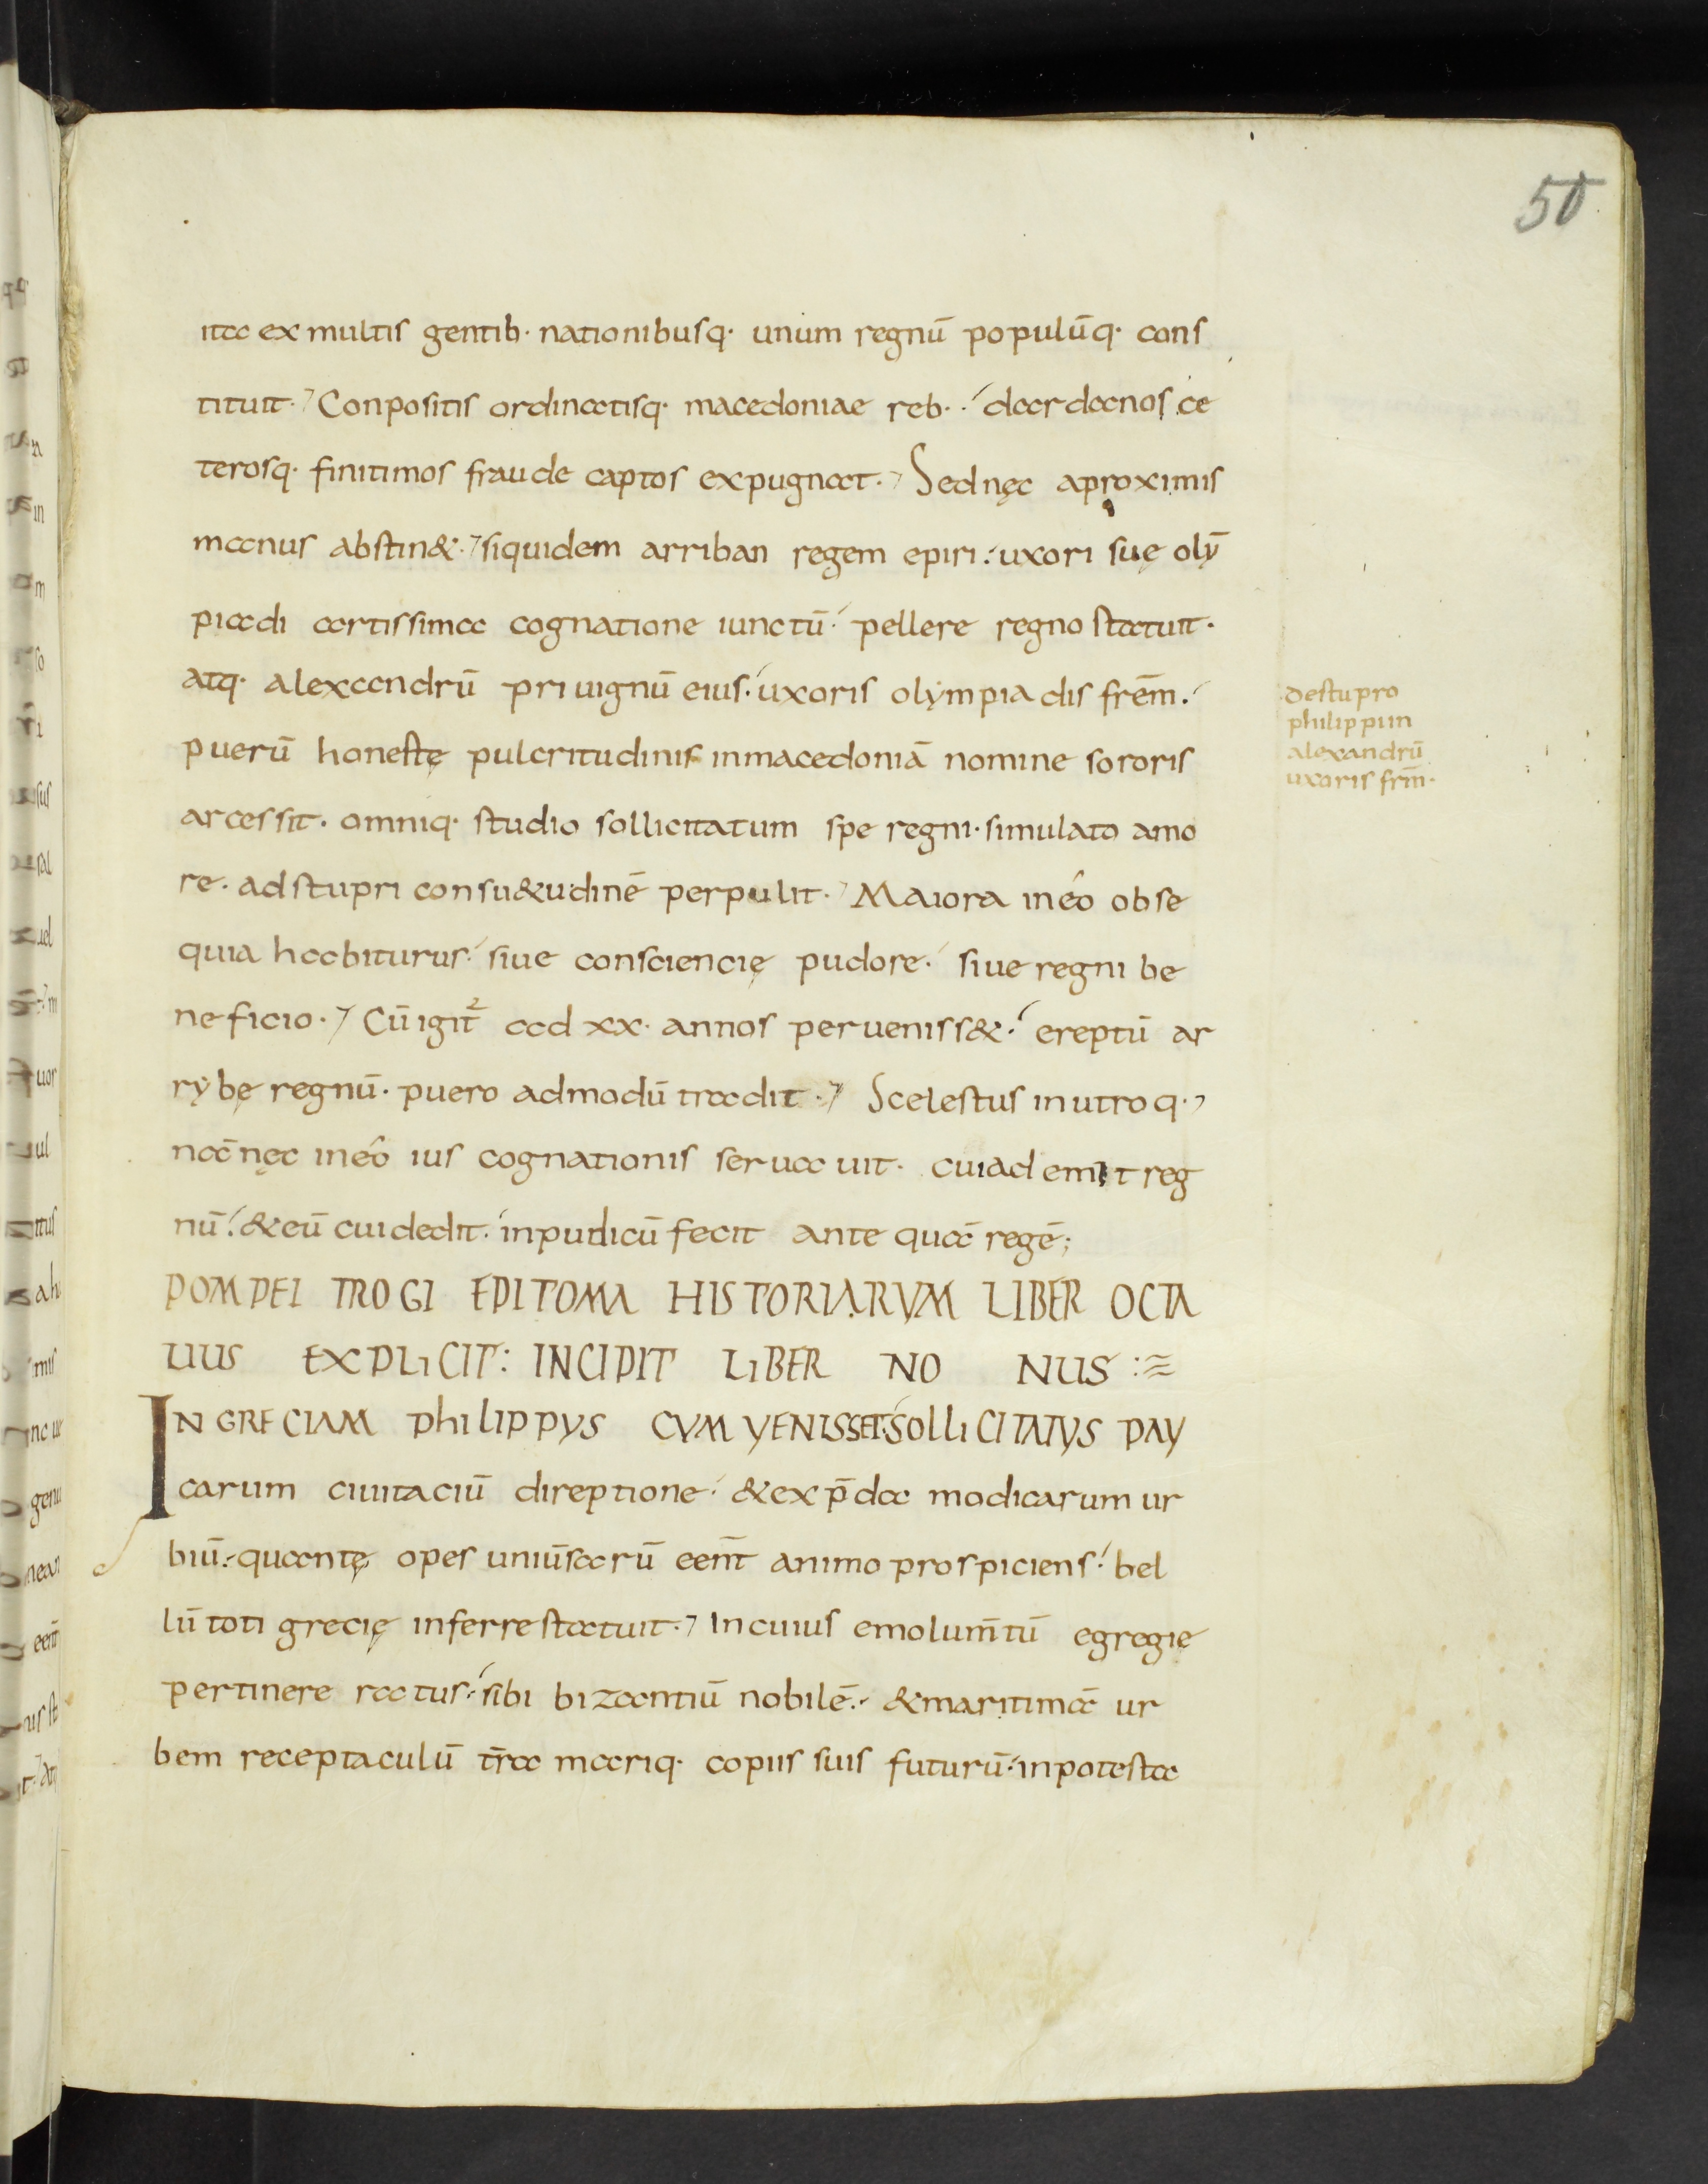 50
ita ex multis gentib· nationibusq· unum regnū populūq· cons
tituit· Conpositis ordinatisq· macedoniae reb· dardanos ce
terosq· finitimos fraude captos expugnat· Sed nęc aproximis
manus abstin&· siquidem arriban regem epiri· uxori suę olȳ
piadi artissima cognatione iunctū· pellere regno statuit·
atq· alexandrū priuignū eius· uxoris olympiadis frēm·
puerū honestę pulcritudinis inmacedoniā nomine sororis
arcessit· omniq· studio sollicitatum spe regni· simulato amo
re· adstupri consu&udinē perpulit· Maiora ineo obse
quia habiturus· siue consciencię pudore· siue regni be
neficio· Cū igit̄ ad xx· annos perueniss&· ereptū ar
rybę regnū· puero admodū tradit· Scelestus inutroq·
nā nęc ineo ius cognationis seruauit· cui ademit reg
nū· &eū cui dedit· inpudicū fecit ante quā regē;
POMPEI TROGI EPITOMA HISTORIARVM LIBER OCTA
UUS EXPLICIT: INCIPIT LIBER NO NUS:
IN GRECIAM PhiLIPPYS CVM YENISSET· SOLLICITATYS PAY
carum ciuitaciū direptione· &ex p̄da modicarum ur
biū· quantę opes uniūsarū eēnt animo prospiciens· bel
lū toti grecię inferre statuit· Incuius emolum̄tū egregie
pertinere ratus· sibi bizantiū nobilē· &maritimā ur
bem receptaculū tr̄a mariq· copiis suis futurū· inpotesta
destupro
philippi in
alexandrū
uxoris frm̄·